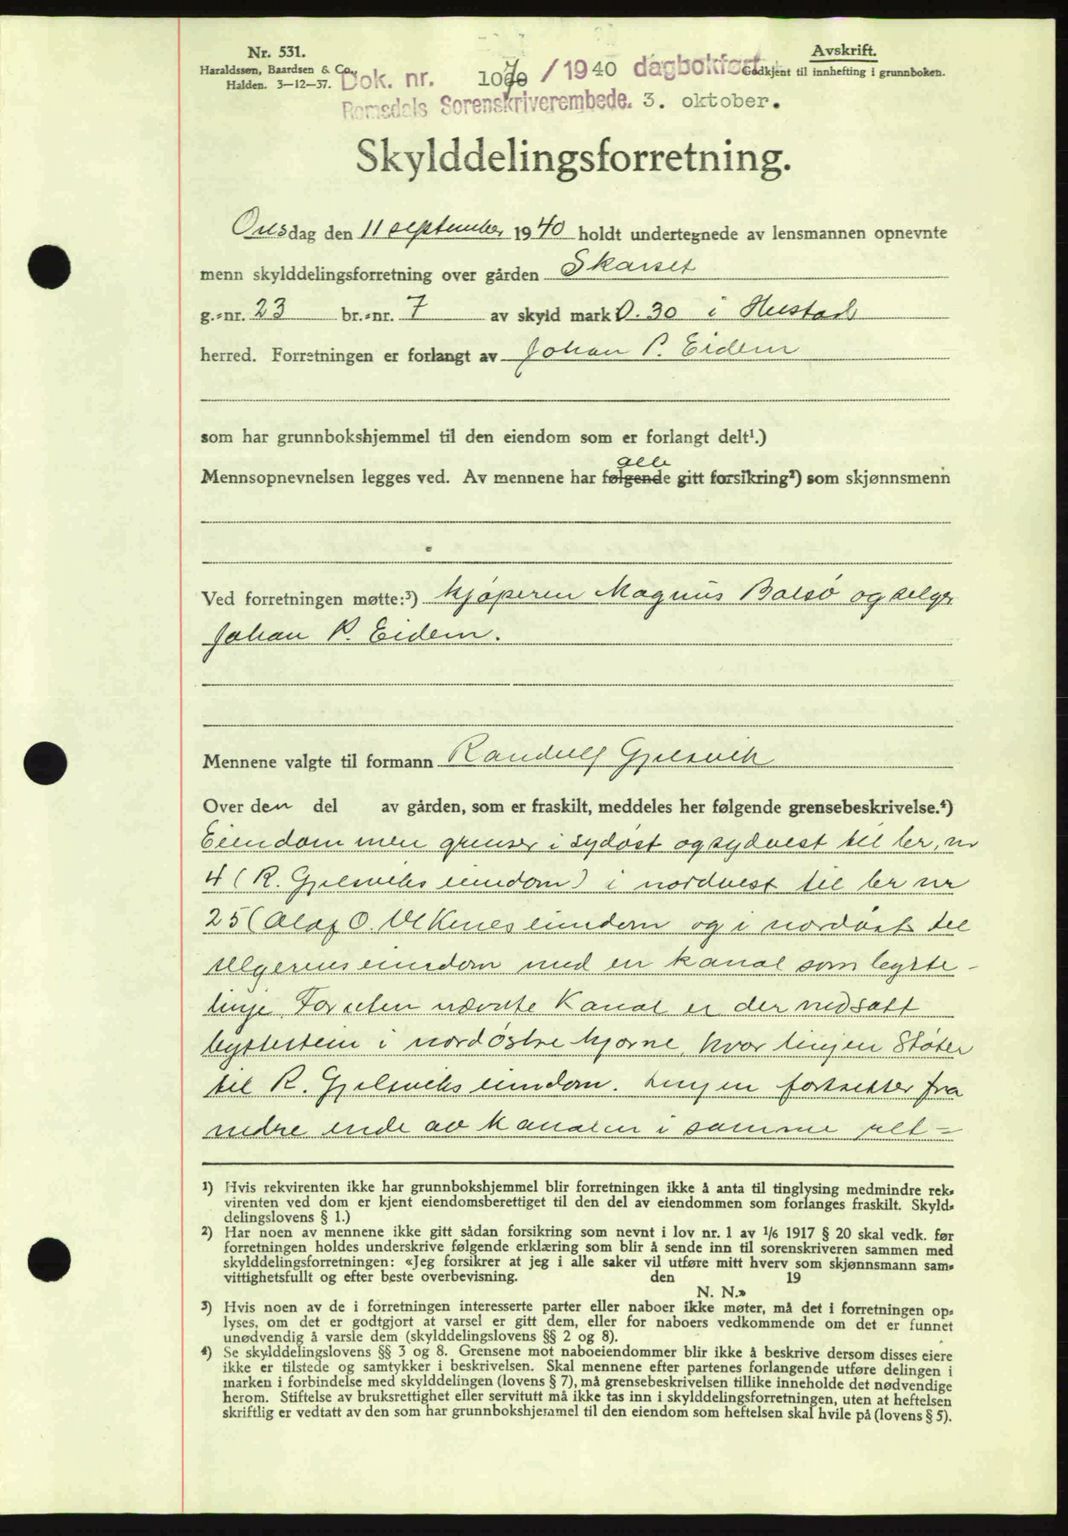 Nr. 531.
Haraldssøn, Baardsen & Co.,
Halden. 3—12—37.
Avskrift.
Godkjent til innhefting i grunnboken.
Dok. nr. 1070 / 1940 dagbokført
Romsdals Sorenskriverembede. 3. oktober.
Skylddelingsforretning.
Onsdag den 11 september 1940 holdt undertegnede av lensmannen opnevnte
menn skylddelingsforretning over gården Skarset
g.-nr. 23 br.-nr. 7 av skyld mark 0.30 i Hustad
herred. Forretningen er forlangt av Johan P. Eidem
som har grunnbokshjemmel til den eiendom som er forlangt delt¹.)
alle
Mennsopnevnelsen legges ved. Av mennene har følgende gitt forsikring²) som skjønnsmenn
Ved forretningen møtte:³) kjøperen Magnus Bolsø og selger
Johan P. Eidem.
Mennene valgte til formann Randulf Gjelsvik
Over den del av gården, som er fraskilt, meddeles her følgende grensebeskrivelse.⁴)
Eiendommen grenser i sydøst og sydvest til br. nr
4 (R. Gjelsviks eiendom) i nordvest til br nr
25 (Olaf O. eiendom og i nordøst til
selgerens eiendom med en kanal som bytte-
linje. Foruten nævnte Kanal er der nedsatt
byttestein i nordøstre hjørne, hvor linjen støter
til R. Gjelsviks eiendom. Linjen fortsetter fra
nedre ende av kanalen i samme ret=
¹) Hvis rekvirenten ikke har grunnbokshjemmel blir forretningen ikke å anta til tinglysing medmindre rek-
virenten ved dom er kjent eiendomsberettiget til den del av eiendommen som forlanges fraskilt. Skyld-
delingslovens § 1.)
²) Har noen av mennene ikke gitt sådan forsikring som nevnt i lov nr. 1 av 1/6 1917 § 20 skal vedk. før
forretningen holdes underskrive følgende erklæring som blir å sende inn til sorenskriveren sammen med
skylddelingsforretningen: «Jeg forsikrer at jeg i alle saker vil utføre mitt hverv som skjønnsmann sam-
vittighetsfullt og efter beste overbevisning. den 19
N. N.»
³) Hvis noen av de i forretningen interesserte parter eller naboer ikke møter, må det i forretningen op-
lyses, om det er godtgjort at varsel er gitt dem, eller for naboers vedkommende om det er funnet
unødvendig å varsle dem (skylddelingslovens §§ 2 og 8).
⁴) Se skylddelingslovens §§ 3 og 8. Grensene mot naboeiendommer blir ikke å beskrive dersom disses eiere
ikke er tilstede og samtykker i beskrivelsen. Skal mennene efter partenes forlangende utføre delingen i
marken i forbindelse med skylddelingen (lovens § 7), må grensebeskrivelsen tillike inneholde det nødvendige
herom. Stiftelse av bruksrettighet eller servitutt må ikke tas inn i skylddelingsforretningen, uten at heftelsen
skriftlig er vedtatt av den som har grunnbokshjemmel til den eiendom som heftelsen skal hvile på (lovens § 5).